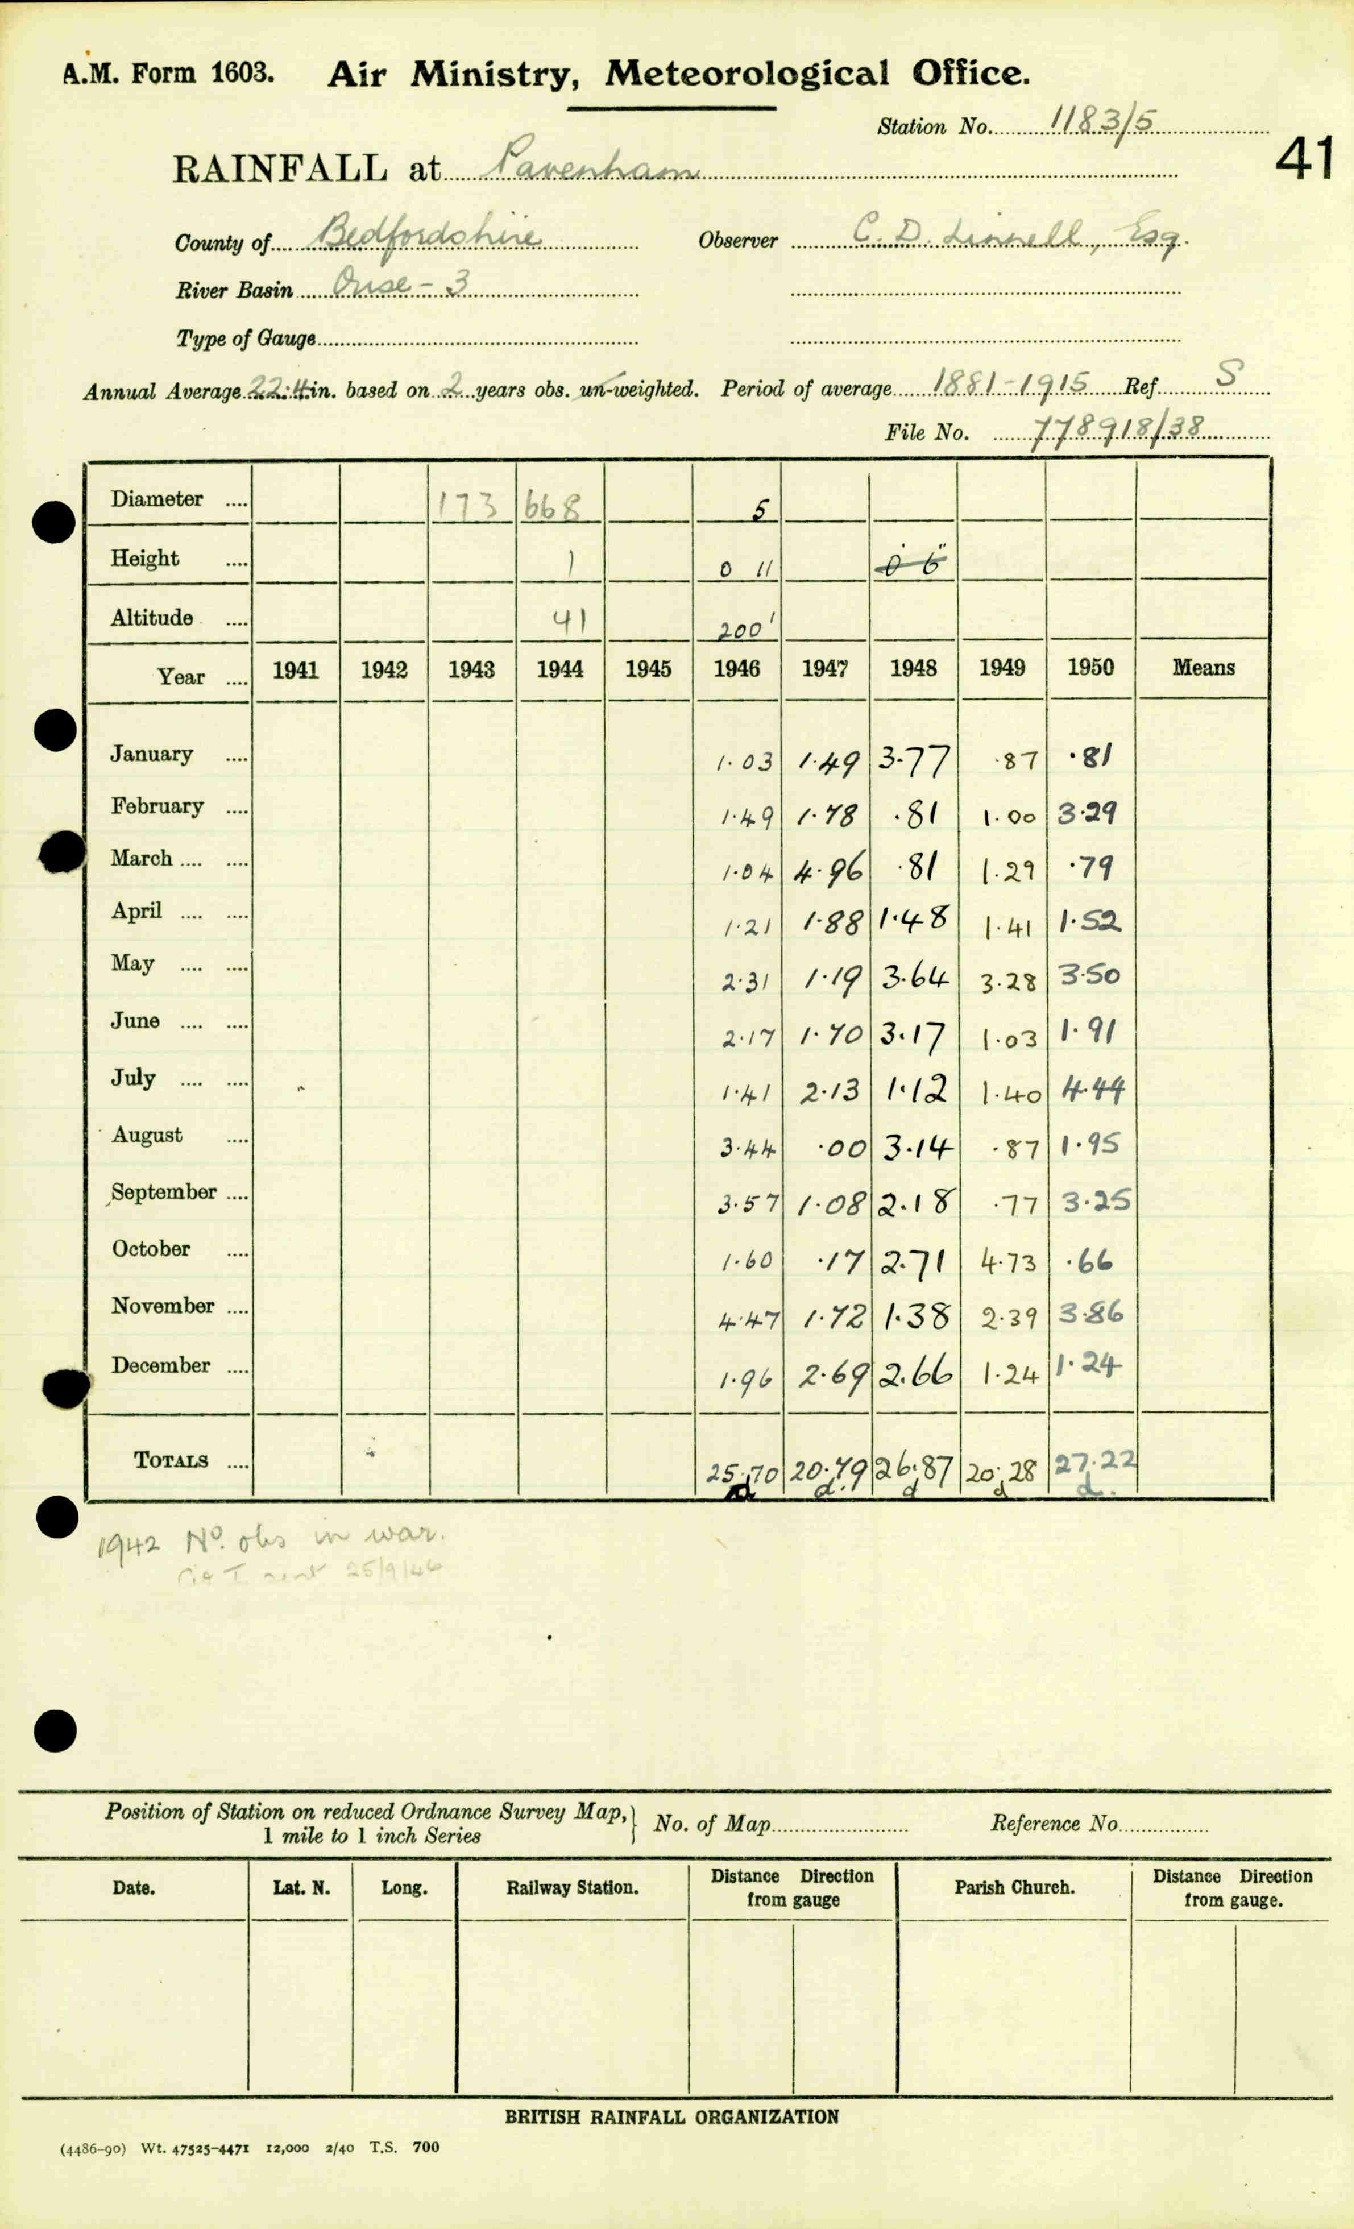 A.M. Form 1603. Air Ministry, Meteorological Office.
Station No. 1183/5
41
RAINFALL at Pavenham
County of Bedfordshire Observer C. D. Linnell, Esq.
River Basin Ouse - 3
Type of Gauge
Annual Average 22.4 in. based on 2 years obs. un-weighted. Period of average 1881-1915 Ref S
File No. 778918/38
Diameter .... 173 668 5
Height .... 1 0 11 0' 6"
Altitude .... 41 200'
Year .... 1941 1942 1943 1944 1945 1946 1947 1948 1949 1950 Means
January .... 1.03 1.49 3.77 .87 .81
February .... 1.49 1.78 .81 1.00 3.29
March .... .... 1.04 4.96 .81 1.29 .79
April .... .... 1.21 1.88 1.48 1.41 1.52
May .... .... 2.31 1.19 3.64 3.28 3.50
June .... .... 2.17 1.70 3.17 1.03 1.91
July .... .... 1.41 2.13 1.12 1.40 4.44
August .... 3.44 .00 3.14 .87 1.95
September .... 3.57 1.08 2.18 .77 3.25
October .... 1.60 .17 2.71 4.73 .66
November .... 4.47 1.72 1.38 2.39 3.86
December .... 1.96 2.69 2.66 1.24 1.24
TOTALS .... 25.70 20.79 26.87 20.28 27.22
d d. d d d.
1942 No. obs in war.
sent 25/9/46
Position of Station on reduced Ordnance Survey Map, 1 mile to 1 inch Series } No. of Map Reference No.
Date. Lat. N. Long. Railway Station. Distance Direction from gauge Parish Church. Distance Direction from gauge.
BRITISH RAINFALL ORGANIZATION
(4486-90) Wt. 47525-4471 12,000 2/40 T.S. 700